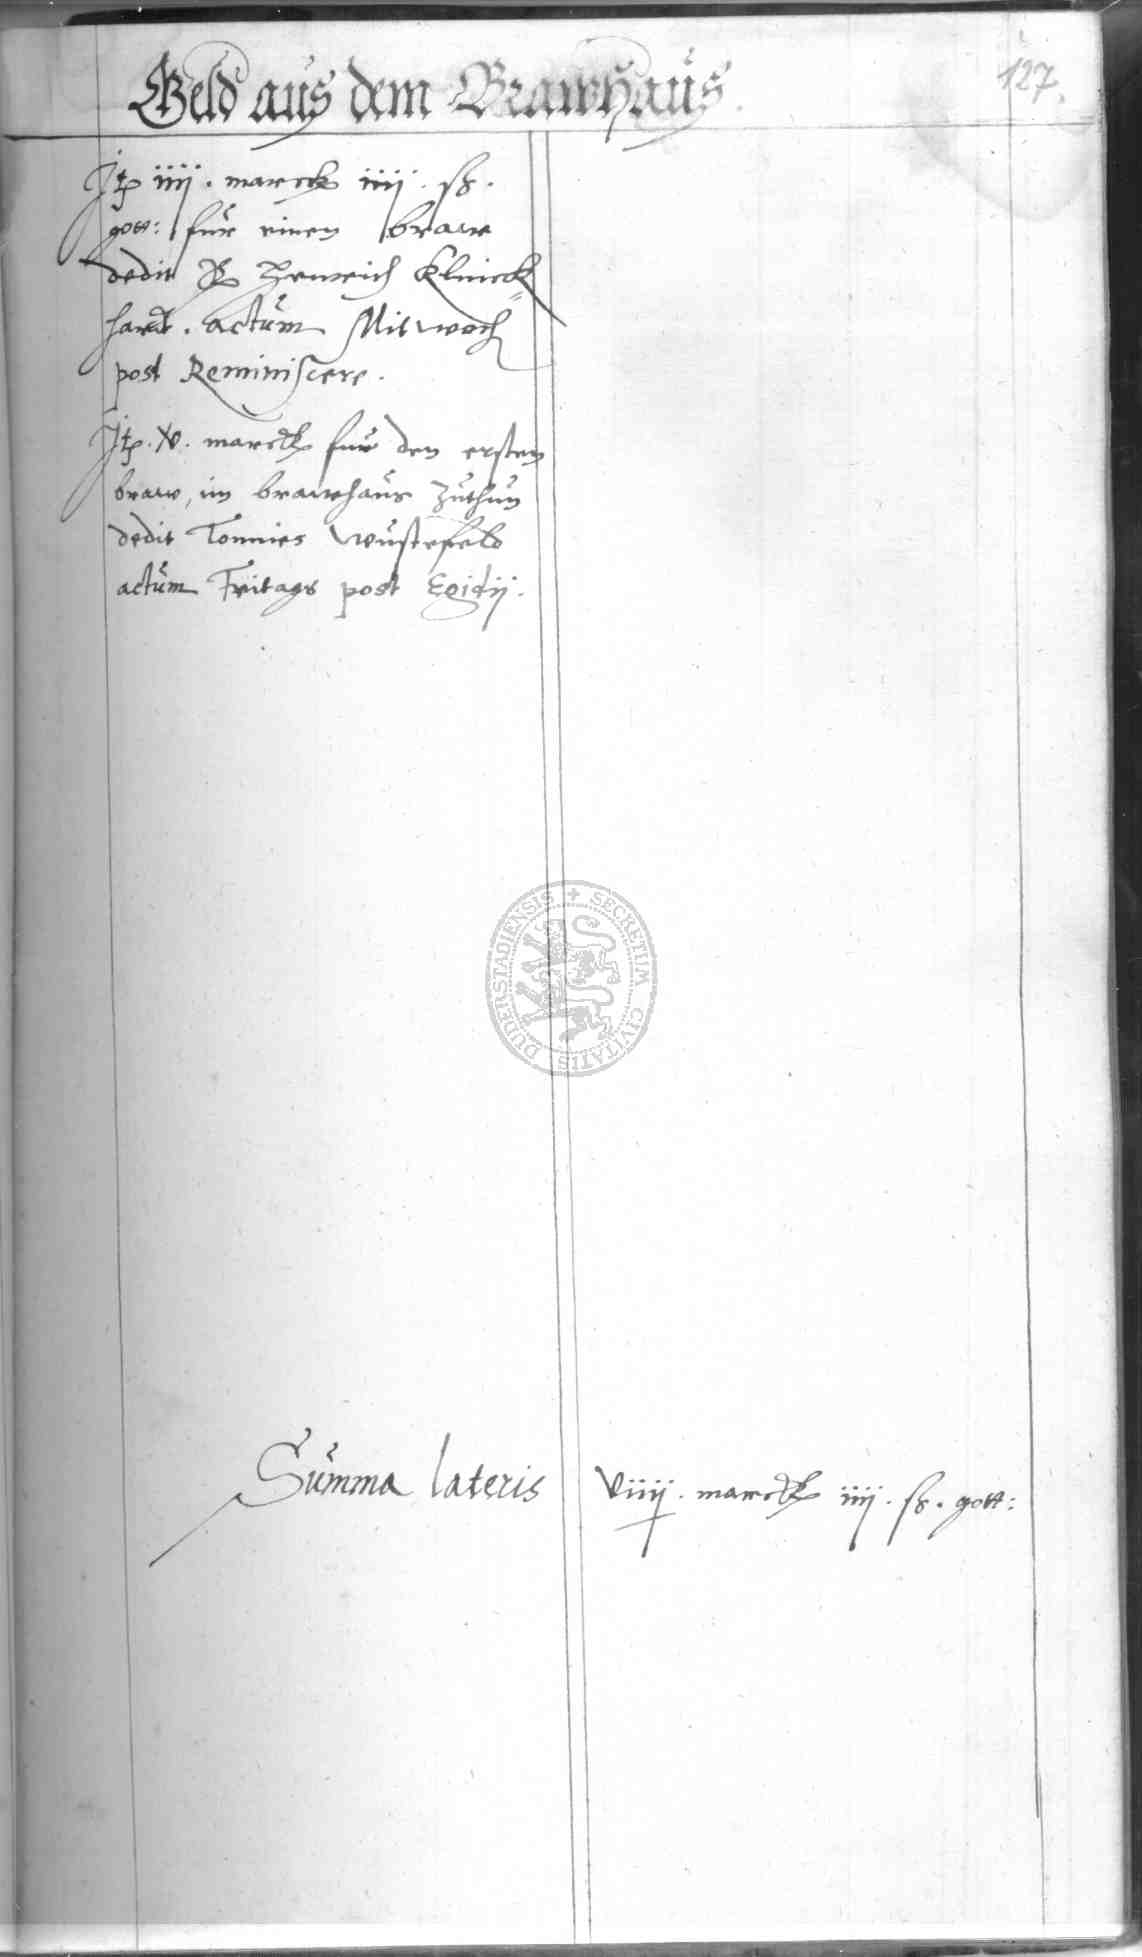 Geld aus dem Brawhaus.
127.
Jt iiij. marck iiij. ß.
gott: für einen braw
dedit H Henrich Klinck=
hardt. actum Mitwoch
post Reminiscere.
Jt. v. marck für den ersten
braw, im brawhaus zuthun
dedit Tonnies Wustefeld
actum Fritags post Egidij.
DUDERSTADIENSIS + SECRETUM CIVITATIS
Summa lateris viiij. marck iiij. ß. gott: